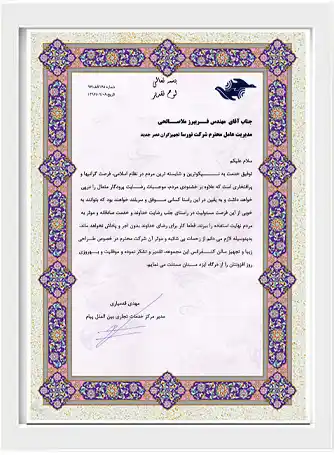 بسمه تعالی
لوح تقدیر
جناب آقای مهندس فریبرز ملاصالحی
مدیریت عامل محترم شرکت نورسا تجهیزگران عصر جدید
سلام علیکم
توفیق خدمت به نیکوترین و شایسته ترین مردم در نظام اسلامی، فرصت گرانبها و
پرافتخاری است که علاوه بر خشنودی مردم، موجبات رضایت پروردگار متعال را درپی
خواهد داشت و به یقین در این راستا کسانی موفق و سربلند خواهند بود که بتوانند به
خوبی از این فرصت مسئولیت در راستای جلب رضایت خداوند و خدمت صادقانه و موثر به
مردم نهایت استفاده را ببرند. قطعا کار برای رضای خداوند بدون اجر و پاداش نخواهد ماند.
بدینوسیله لازم می دانم از زحمات بی شائبه و موثر آن شرکت محترم در خصوص طراحی
زیبا و تجهیز سالن کنفرانس این مجموعه، تقدیر و تشکر نموده و موفقیت و بهروزی
روز افزونتان را از درگاه ایزد منان مسئلت می نمایم.
مهدی قدمیاری
مدیر مرکز خدمات تجاری بین الملل پیام